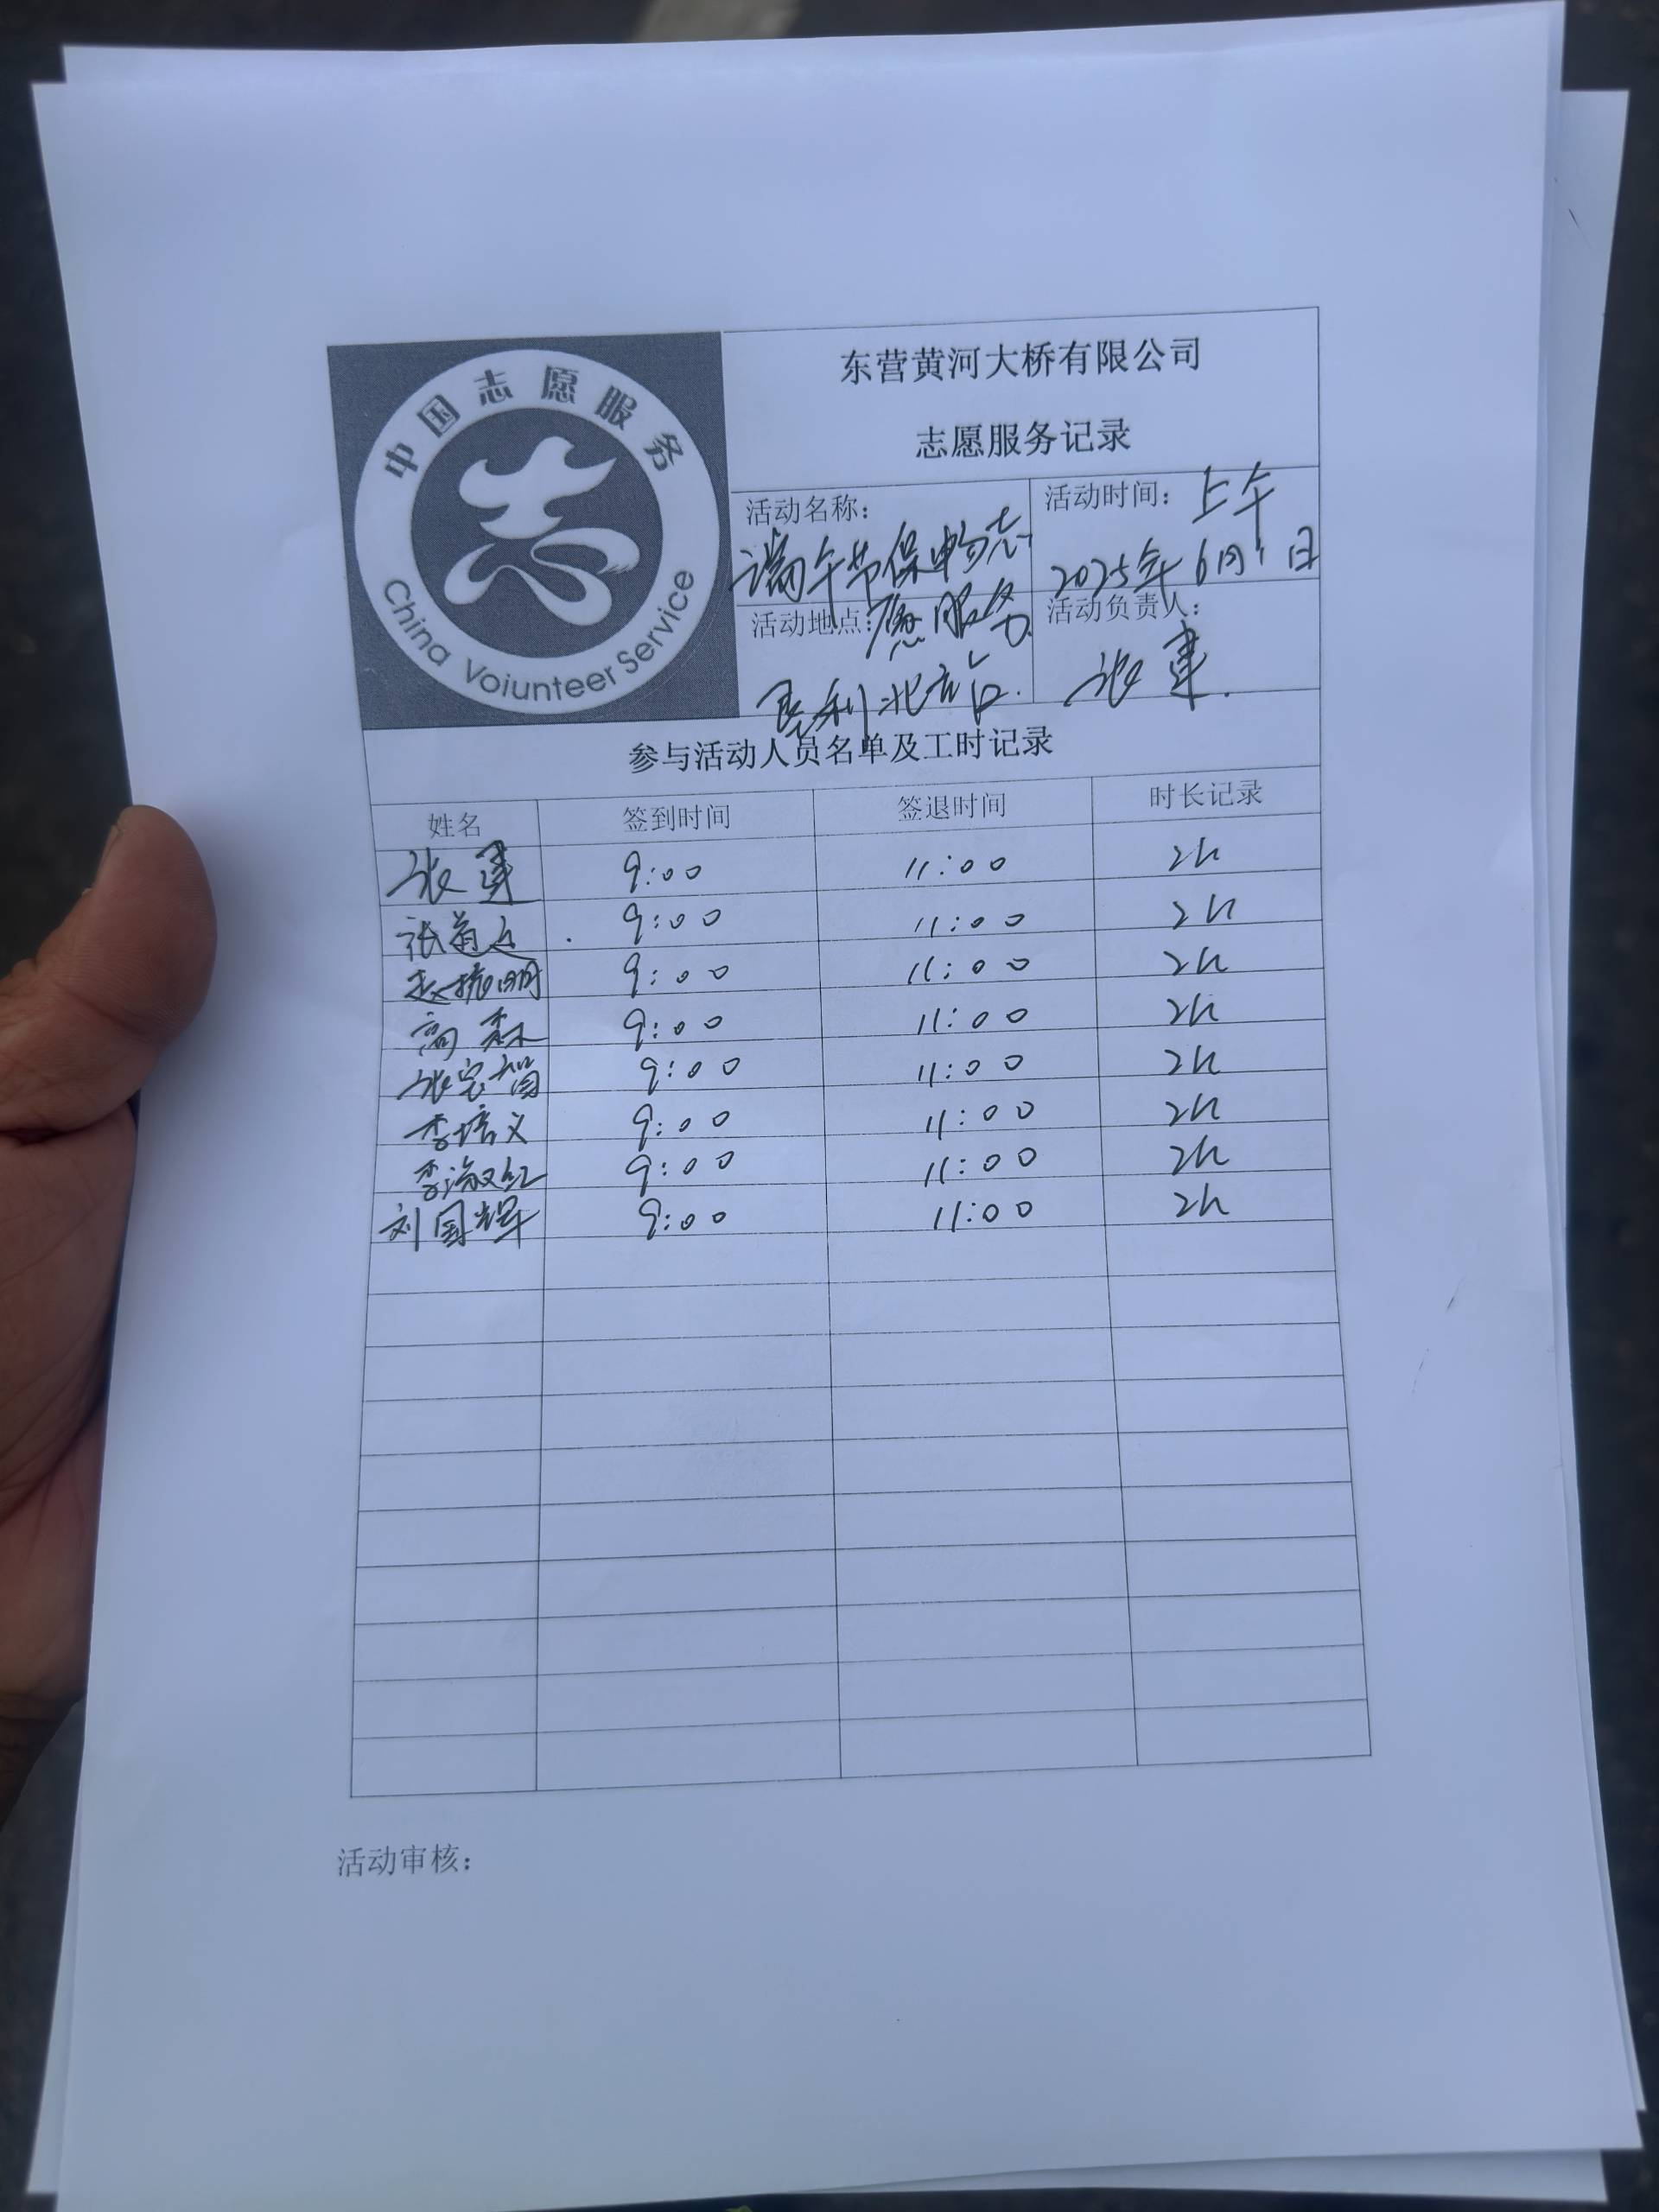 中国志愿服务
China Voiunteer Service
东营黄河大桥有限公司
志愿服务记录
活动名称：
端午节保畅志
愿服务
活动时间：上午
2025年6月1日
活动地点：
垦利北站.
活动负责人：
张建.
参与活动人员名单及工时记录
姓名 签到时间 签退时间 时长记录
张建 9:00 11:00 2h
张 9:00 11:00 2h
赵振明 9:00 11:00 2h
高森 9:00 11:00 2h
张宝 9:00 11:00 2h
李培义 9:00 11:00 2h
李淑红 9:00 11:00 2h
刘国辉 9:00 11:00 2h
活动审核：